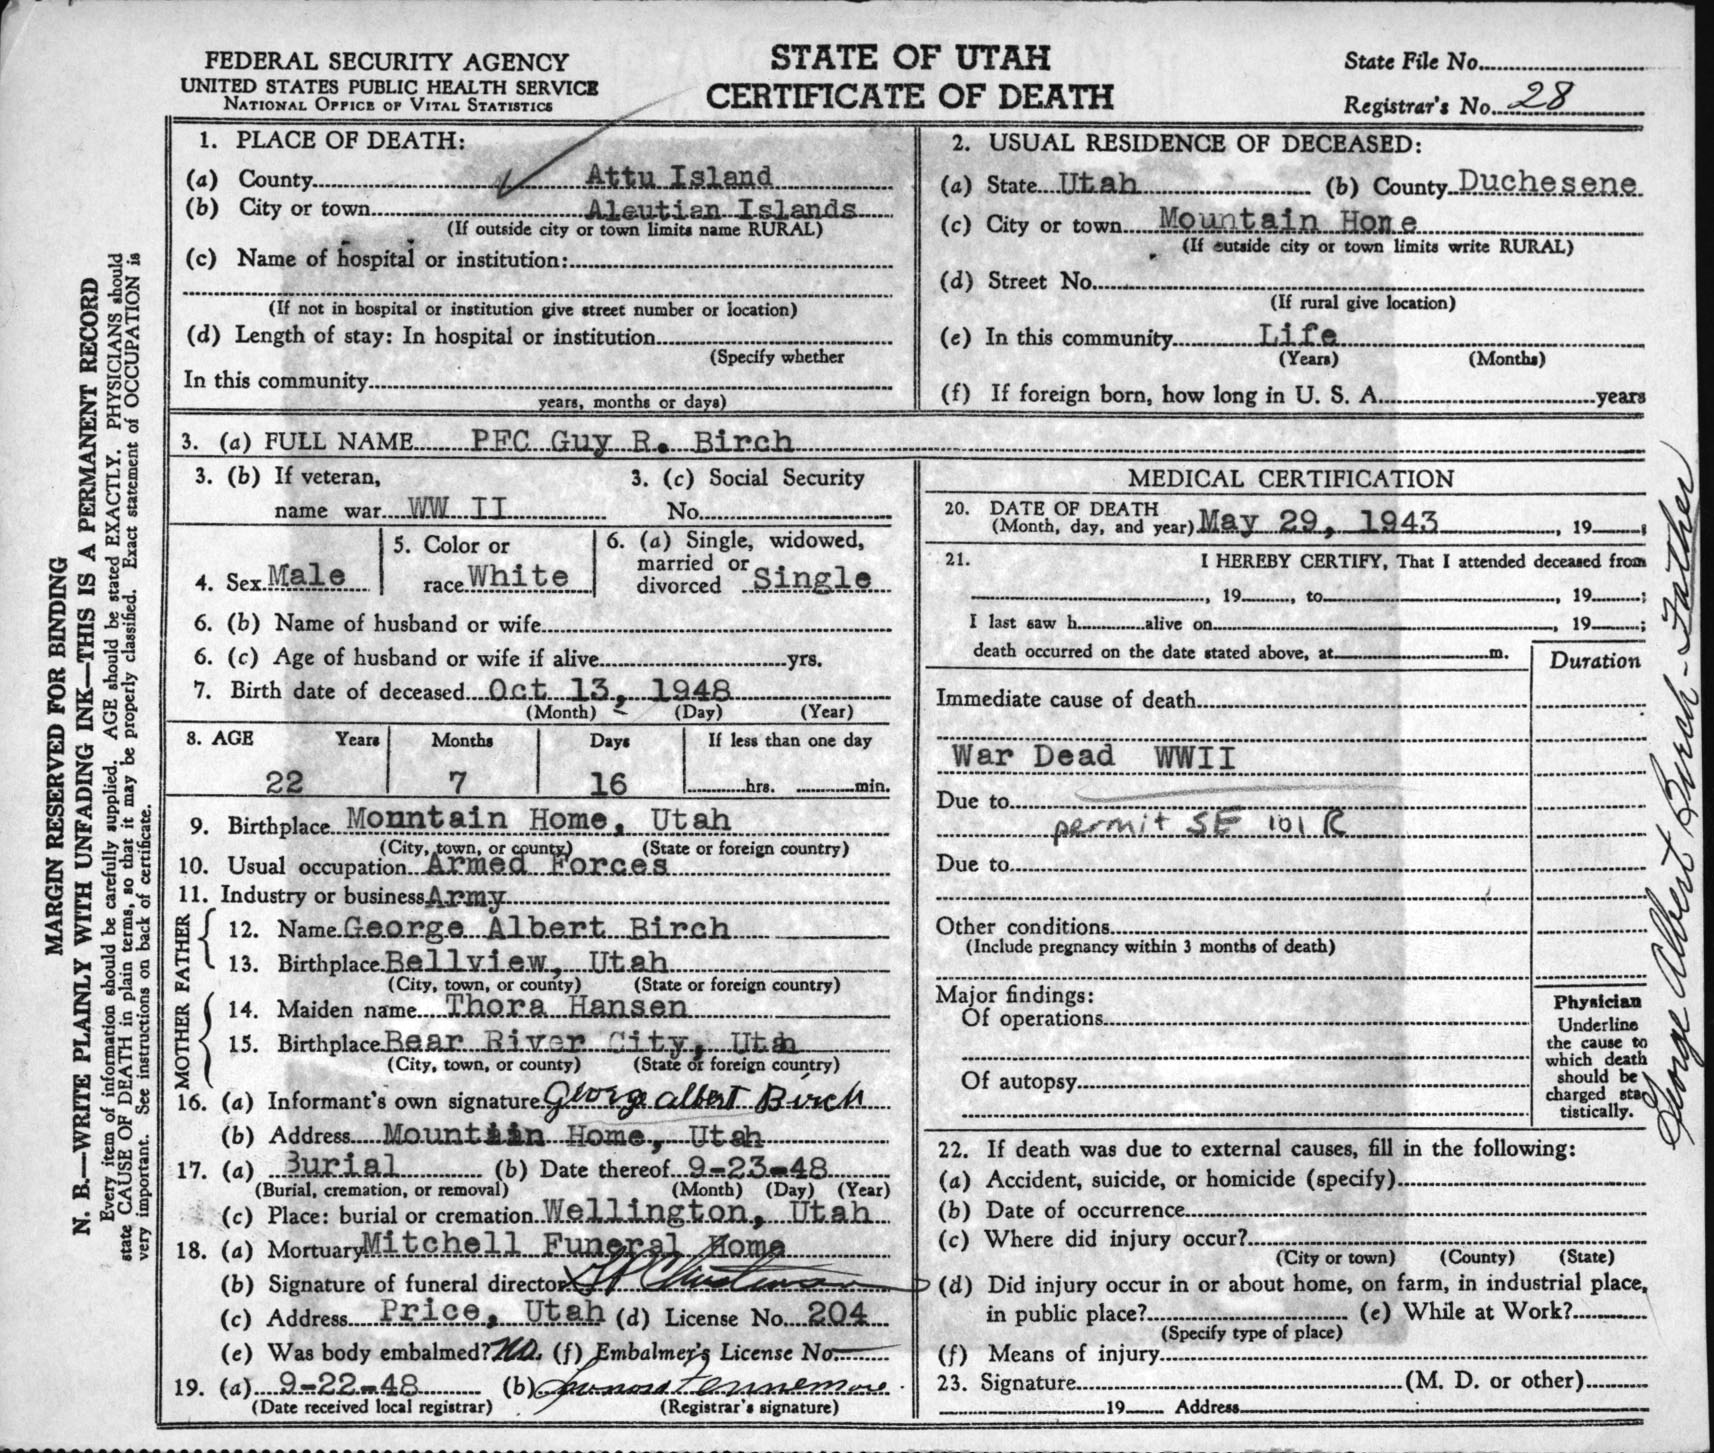 FEDERAL SECURITY AGENCY
UNITED STATES PUBLIC HEALTH SERVICE
NATIONAL OFFICE OF VITAL STATISTICS
STATE OF UTAH
CERTIFICATE OF DEATH
State File No.
Registrar's No. 28
MARGIN RESERVED FOR BINDING
N. B.—WRITE PLAINLY WITH UNFADING INK—THIS IS A PERMANENT RECORD
Every item of information should be carefully supplied. AGE should be stated EXACTLY. PHYSICIANS should
state CAUSE OF DEATH in plain terms, so that it may be properly classified. Exact statement of OCCUPATION is
very important. See instructions on back of certificate.
1. PLACE OF DEATH:
(a) County Attu Island
(b) City or town Aleutian Islands
(If outside city or town limits name RURAL)
(c) Name of hospital or institution:
(If not in hospital or institution give street number or location)
(d) Length of stay: In hospital or institution
(Specify whether
In this community
years, months or days)
2. USUAL RESIDENCE OF DECEASED:
(a) State Utah (b) County Duchesene
(c) City or town Mountain Home
(If outside city or town limits write RURAL)
(d) Street No.
(If rural give location)
(e) In this community Life
(Years) (Months)
(f) If foreign born, how long in U. S. A. years
3. (a) FULL NAME PFC Guy R. Birch
3. (b) If veteran, 3. (c) Social Security
name war WW II No.
4. Sex Male
5. Color or
race White
6. (a) Single, widowed,
married or
divorced Single
6. (b) Name of husband or wife
6. (c) Age of husband or wife if alive yrs.
7. Birth date of deceased Oct 13, 1948
(Month) (Day) (Year)
8. AGE Years Months Days If less than one day
22 7 16 hrs. min.
9. Birthplace Mountain Home, Utah
(City, town, or county) (State or foreign country)
10. Usual occupation Armed Forces
11. Industry or business Army
FATHER
12. Name George Albert Birch
13. Birthplace Bellview, Utah
(City, town, or county) (State or foreign country)
MOTHER
14. Maiden name Thora Hansen
15. Birthplace Bear River City, Utah
(City, town, or county) (State or foreign country)
16. (a) Informant's own signature George Albert Birch
(b) Address Mountain Home, Utah
17. (a) Burial (b) Date thereof 9-23-48
(Burial, cremation, or removal) (Month) (Day) (Year)
(c) Place: burial or cremation Wellington, Utah
18. (a) Mortuary Mitchell Funeral Home
(b) Signature of funeral director
(c) Address Price, Utah (d) License No. 204
(e) Was body embalmed? No. (f) Embalmer's License No.
19. (a) 9-22-48 (b)
(Date received local registrar) (Registrar's signature)
MEDICAL CERTIFICATION
20. DATE OF DEATH
(Month, day, and year) May 29, 1943, 19 ;
21. I HEREBY CERTIFY, That I attended deceased from
, 19 , to , 19 ;
I last saw h alive on , 19 ;
death occurred on the date stated above, at m.
Duration
Immediate cause of death
War Dead WWII
Due to
permit SE 101 R
Due to
Other conditions
(Include pregnancy within 3 months of death)
Major findings:
Of operations
Of autopsy
Physician
Underline
the cause to
which death
should be
charged sta-
tistically.
22. If death was due to external causes, fill in the following:
(a) Accident, suicide, or homicide (specify)
(b) Date of occurrence
(c) Where did injury occur?
(City or town) (County) (State)
(d) Did injury occur in or about home, on farm, in industrial place,
in public place? (e) While at Work?
(Specify type of place)
(f) Means of injury
23. Signature (M. D. or other)
19 Address
George Albert Birch - Father